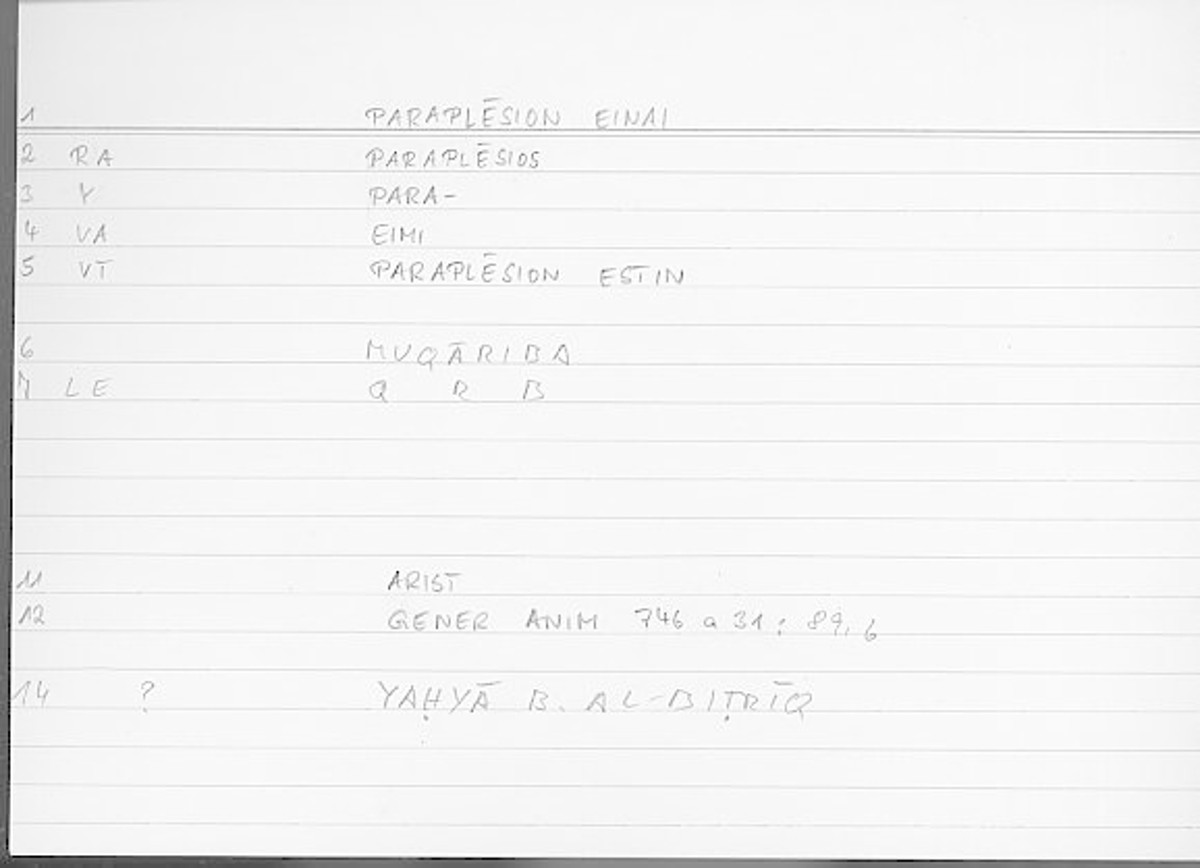 1 PARAPLĒSION EINAI
2 RA PARAPLĒSIOS
3 Y PARA-
4 VA EIMI
5 VT PARAPLĒSION ESTIN
6 MUQĀRIBA
7 LE Q R B
11 ARIST
12 GENER ANIM 746 a 31 ; 89, 6
14 ? YAḤYĀ B. AL-BIṬRĪQ